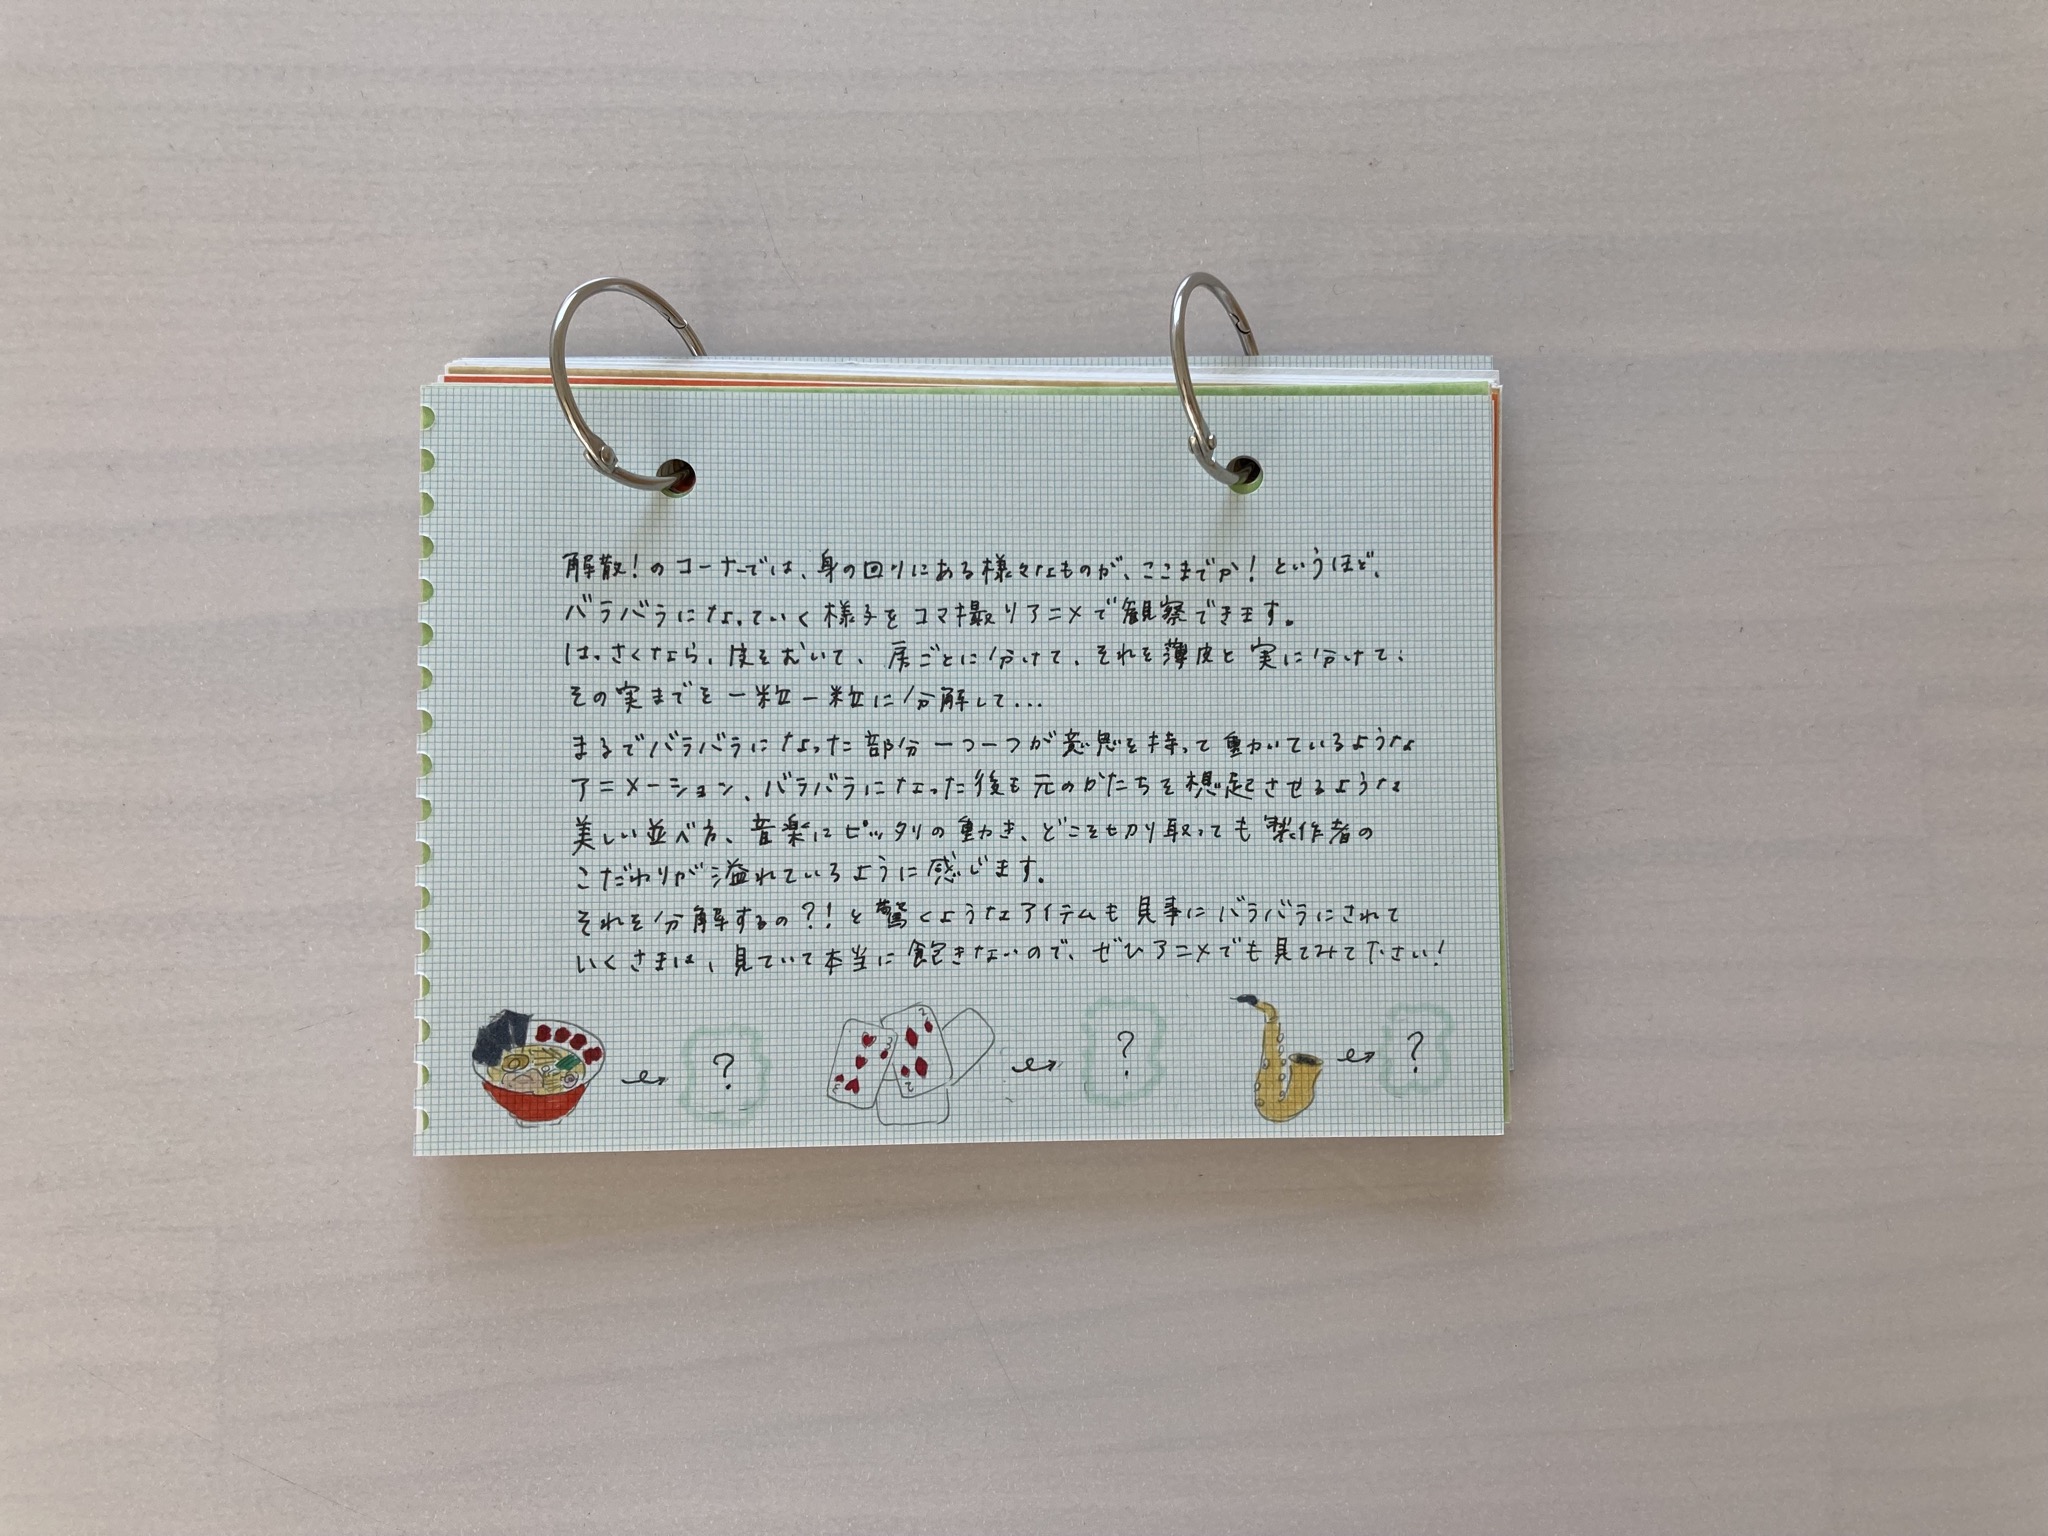 解散！のコーナーでは、身の回りにある様々なものが、ここまでか！というほど、
バラバラになっていく様子をコマ撮りアニメで観察できます。
はっさくなら、皮をむいて、房ごとに分けて、それを薄皮と実に分けて、
その実までを一粒一粒に分解して...
まるでバラバラになった部分一つ一つが意思を持って動いているような
アニメーション、バラバラになった後も元のかたちを想起させるような
美しい並べ方、音楽にピッタリの動き、どこを切り取っても製作者の
こだわりが溢れているように感じます。
それを分解するの？！と驚くようなアイテムも見事にバラバラにされて
いくさまは、見ていて本当に飽きないので、ぜひアニメでも見てみて下さい！
? ? ?